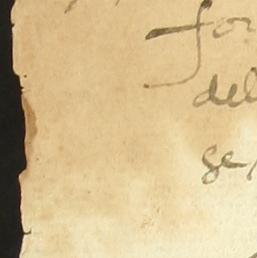 for
del
se